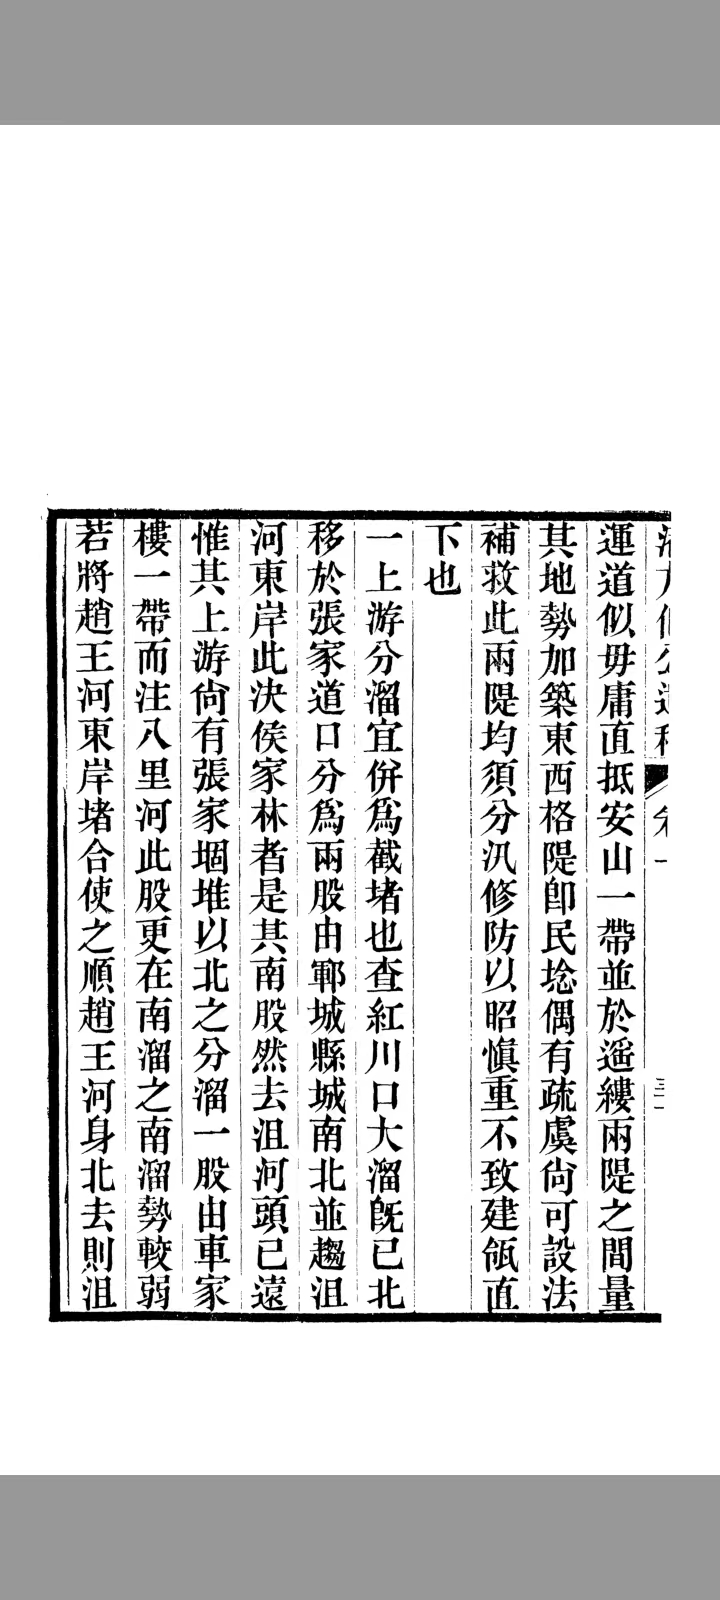 卷一
運道似毋庸直抵安山一帶並於遥縷兩隄之間量
其地勢加築東西格隄卽民埝偶有疏虞尙可設法
補救此兩隄均須分汛修防以昭愼重不致建瓴直
下也
一上游分溜宜併爲截堵也查紅川口大溜旣已北
移於張家道口分爲兩股由鄆城縣城南北並趨沮
河東岸此決侯家林者是其南股然去沮河頭已遠
惟其上游尙有張家堌堆以北之分溜一股由車家
樓一帶而注八里河此股更在南溜之南溜勢較弱
若將趙王河東岸堵合使之順趙王河身北去則沮